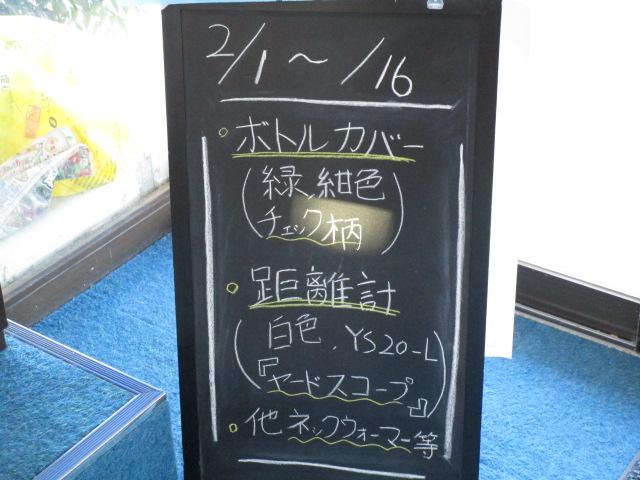 2/1～/16
・ボトルカバー
(緑、紺色
チェック柄)
・距離計
(白色、YS20-L
『ヤードスコープ』)
・他ネックウォーマー等